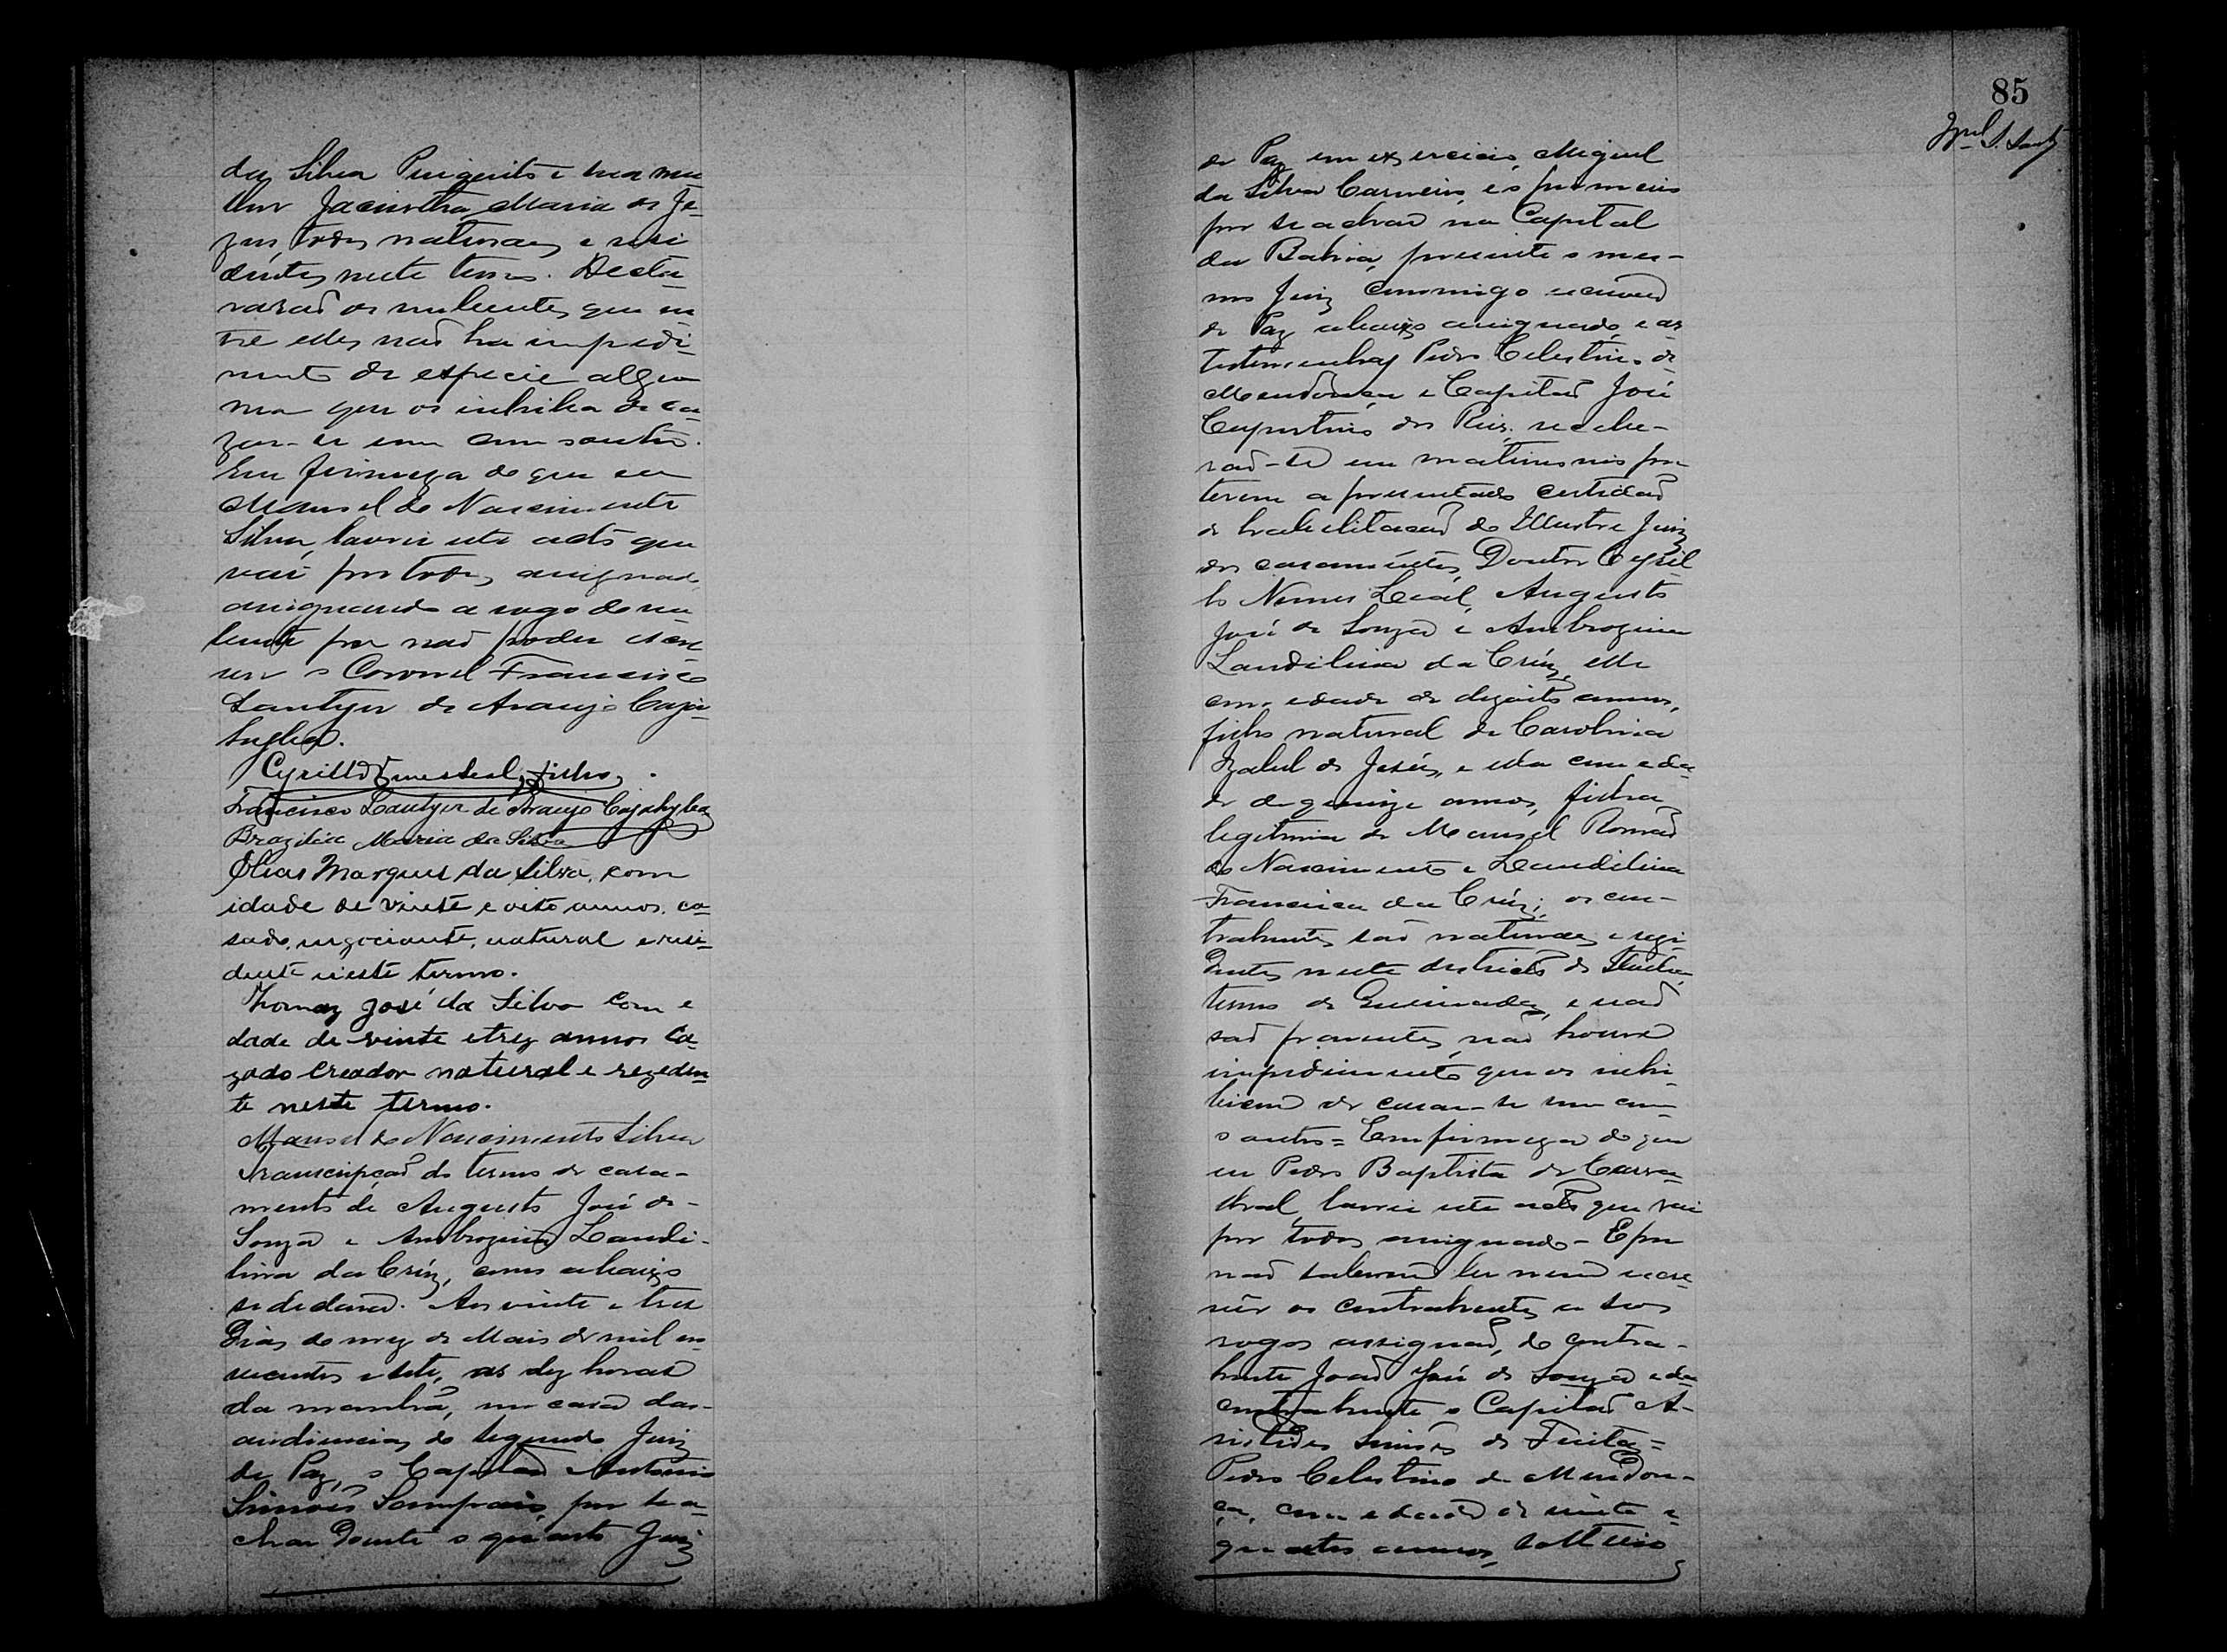 da Silva Purigerito e sua mu
lher Jacintha Maria de Je-
zus todos naturaes e resi
dentes neste termo. Decla-
rarão os nubentes que en
tre elles não ha impedi-
mento de especie algu
ma que os inhiba de ca-
zar-se um com o outro.
Em firmeza do que eu
Manoel do Nascimento
Silva, lavrei este acto que
vai por todos assignado,
assignando a rogo do nu
bente por não poder escre
ver o Coronel Francisco
Lantyer de Araujo Caja-
hyba.
Cyrillo Leal, Filho.
Francisco Lantyer de Araujo Cajahyba
Brazilia Maria da Silva
Elias Marques da Silva, com
idade de vinte e oito annos, ca-
sado, negociante, natural e resi-
dente neste termo.
Thomaz José da Silva com e
dade de vinte e trez annos ca-
zado creador natural e rezeden
te neste termo.
Manoel do Nascimento Silva
Transcripção do termo de casa-
mento de Augusto José de
Souza e Ambrozina Laudi-
lina da Crúz, como abaixo
se declara. Aos vinte e tres
Dias do mez de Maio de mil no
vecentos e sete, as dez horas
da manhã, na casa das
audiencias do segundo Juiz
de Paz, o Capitão Antonio
Simões Sampaio, por se a-
char Doente o quarto Juiz
85
de Paz em exercicio, Miguel
da Silva Carneiro, e o primeiro
por se achar na Capital
da Bahia, presente o mes-
mo Juiz commigo escrivão
de Paz abaixo assignado, e as
testemunhas Pedro Celestino de
Mendonça e Capitão José
Cupertino dos Reis, recebe-
rão-se em matrimonio por
terem apresentado certidão
de habelitação do Illustre Juiz
dos casamentos, Doutor Cyril
lo Nunes Leal, Augusto
José de Souza e Ambrozina
Laudilina da Crúz, elle
com edade de dezoito annos,
filho natural de Carolina
Izabel de Jesús, e ella com eda-
de de quinze annos, filha
legitima de Manoel Romão
do Nascimento e Laudilina
Francisca da Crúz; os con-
trahentes são naturaes e rezi-
Dentes neste districto de
termo de Queimadas, e não
são parentes, não houve
impedimento que os inhi-
bicem de casar-se um com
o outro = Em firmeza do que
eu Pedro Baptista de Carva-
lhal, lavrei este acto que vai
por todos assignado - E por
não saberem ler nem escre-
ver os contrahentes a seos
rogos assignão, do contra-
hente João José de Souza e da
contrahente o Capitão A-
ristides Simões de Freitas =
Pedro Celestino de Mendon-
ça, com edade de vinte e
quatro annos, solteiro